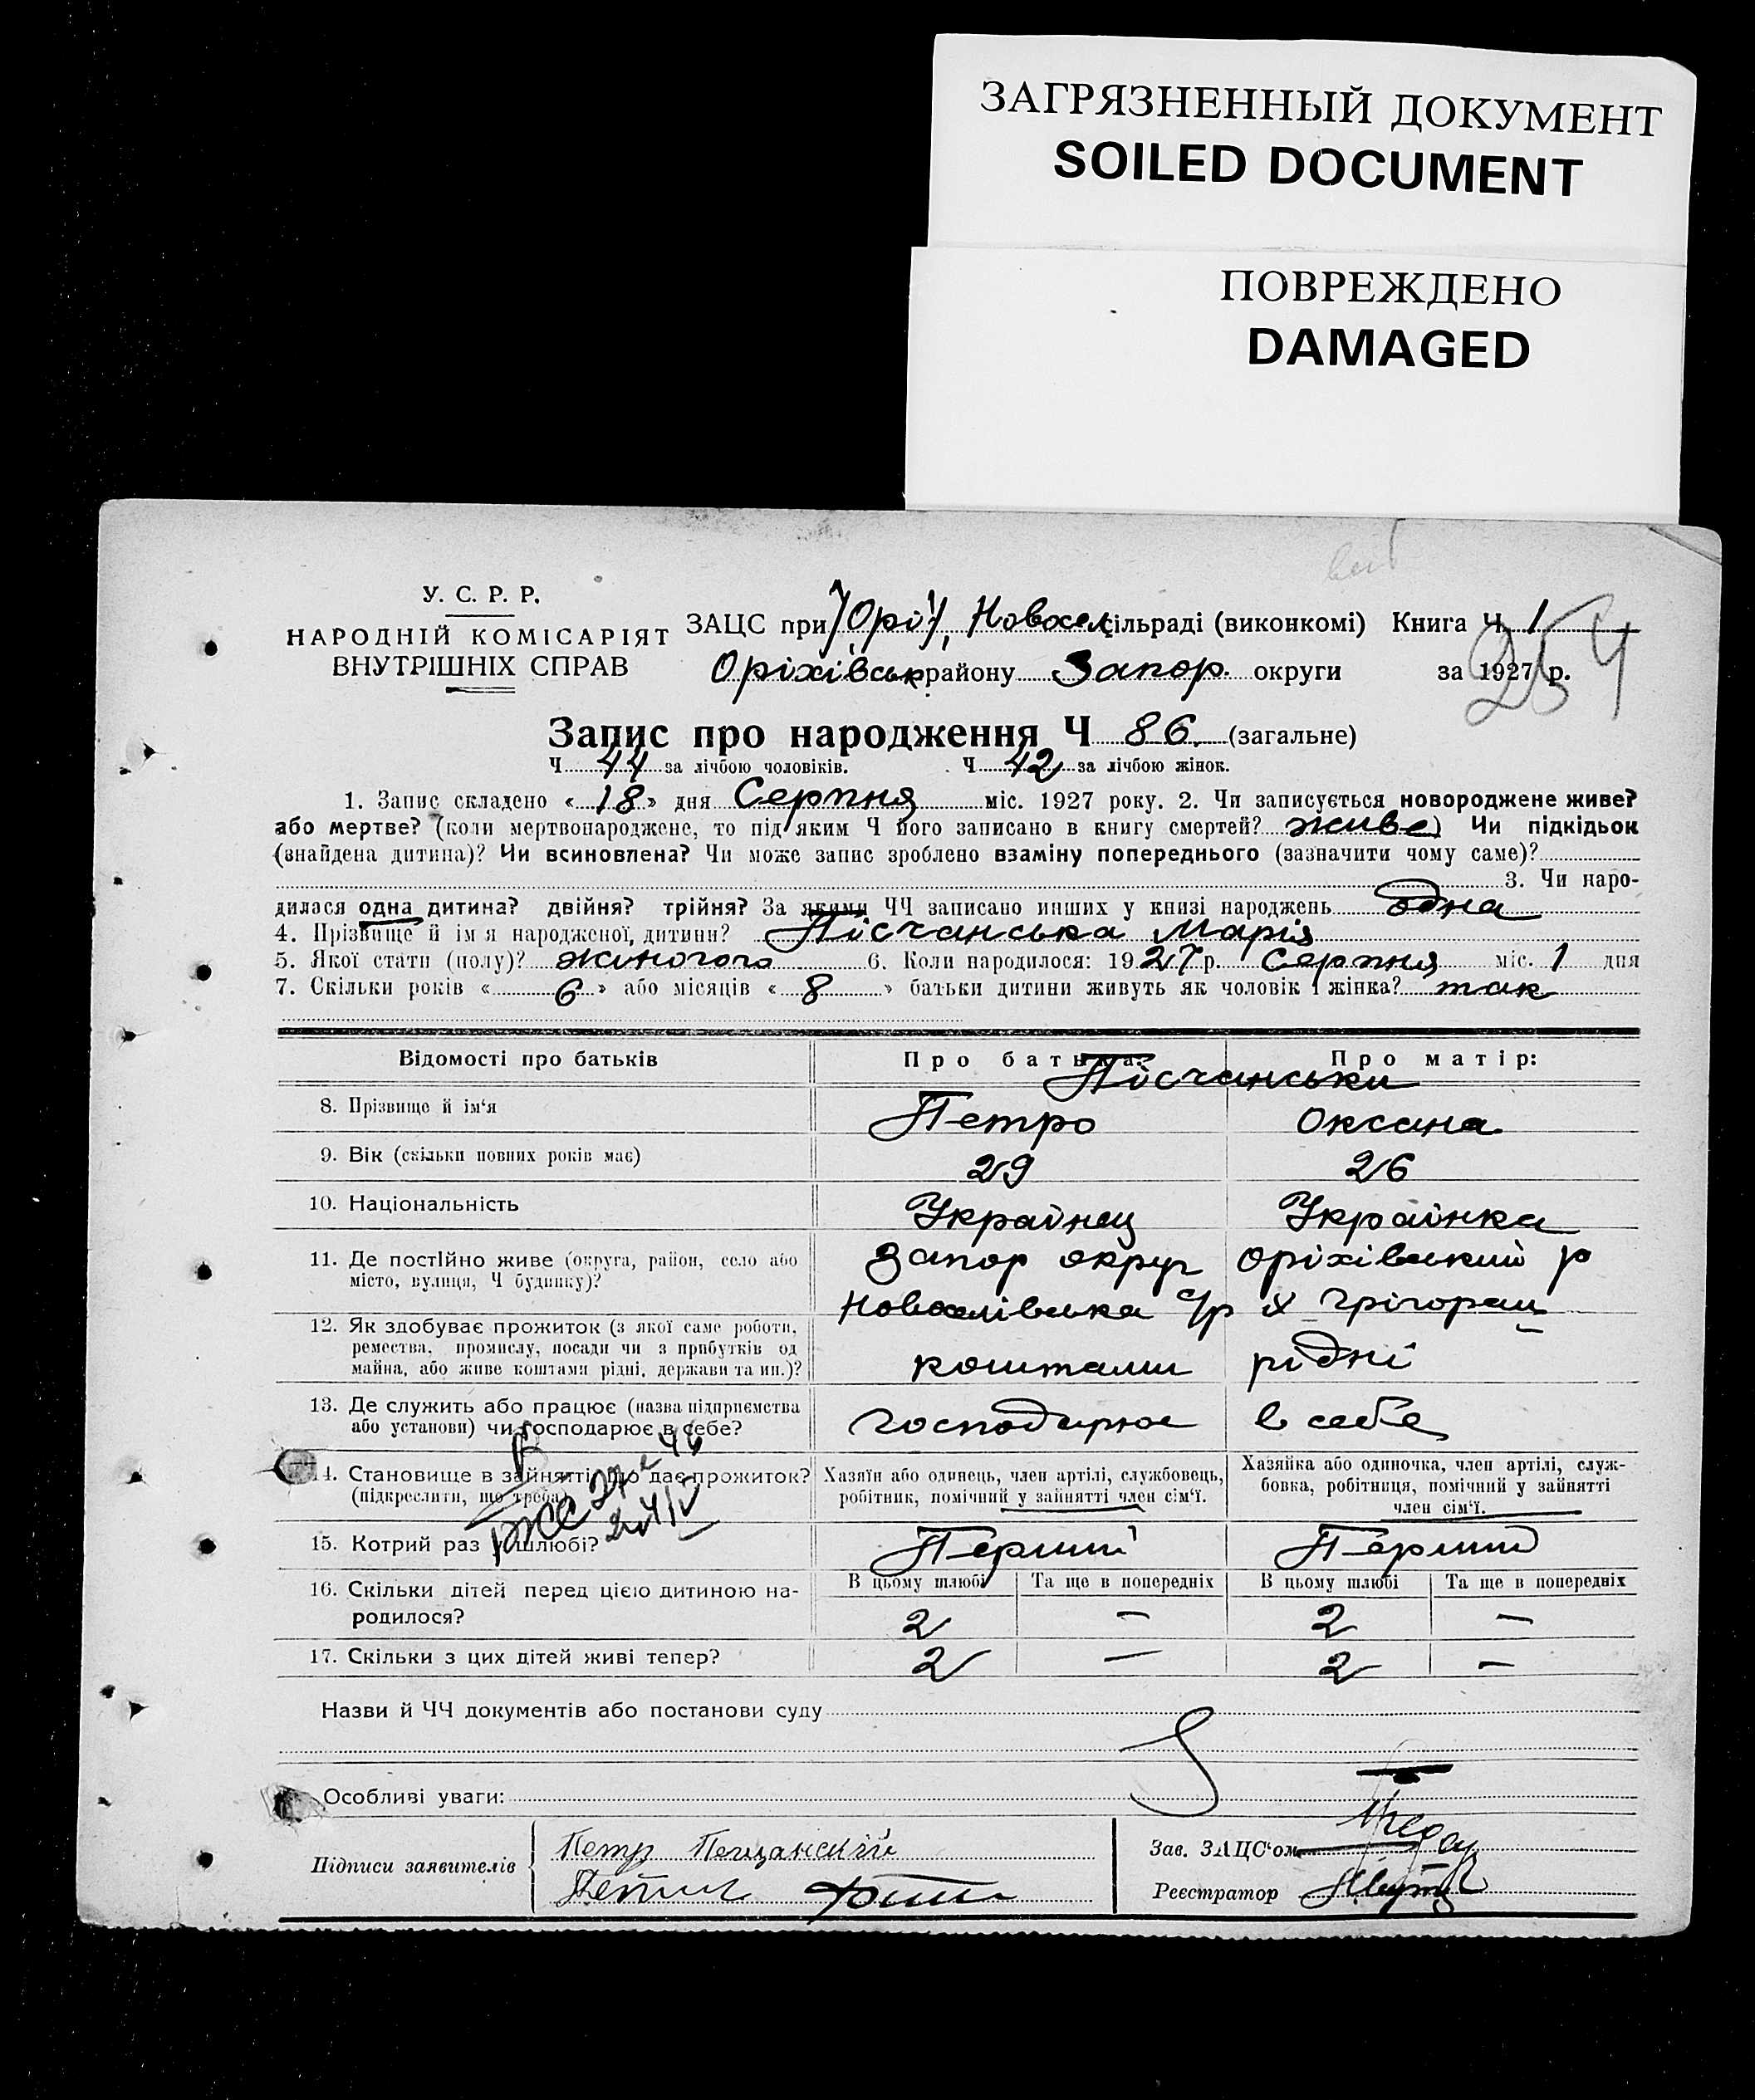 ЗАГРЯЗНЕННЫЙ ДОКУМЕНТ
SOILED DOCUMENT
ПОВРЕЖДЕНО
DAMAGED
У. С. Р. Р.
НАРОДНІЙ КОМІСАРІЯТ
ВНУТРІШНІХ СПРАВ
ЗАЦС при Новосел сільраді (виконкомі) Книга Ч. 1
Оріхівськ району Запор. округи за 1927 р.
254
Запис про народження Ч 86. (загальне)
Ч 44 за лічбою чоловіків. Ч 42 за лічбою жінок.
1. Запис складено « 18 » дня Серпня міс. 1927 року. 2. Чи записується новороджене живе?
або мертве? (коли мертвонароджене, то під яким Ч його записано в книгу смертей? живе) Чи підкідьок
(знайдена дитина)? Чи всиновлена? Чи може запис зроблено взаміну попереднього (зазначити чому саме)?
3. Чи наро-
дилася одна дитина? двійня? трійня? За якими ЧЧ записано инших у книзі народжень одна
4. Прізвище й ім'я народженої дитини? Пісчанська Марія
5. Якої стати (полу)? жіночого 6. Коли народилося: 1927 р. Серпня міс. 1 дня
7. Скільки років « 6 » або місяців « 8 » батьки дитини живуть як чоловік і жінка? так
Відомості про батьків Про батька: Про матір:
Пісчанськи
8. Прізвище й ім'я Петро Оксана
9. Вік (скільки повних років має) 29 26
10. Національність Українец Українка
11. Де постійно живе (округа, район, село або Запор округ Оріхівський р
місто, вулиця, Ч будинку)? Новоселівська с/р х
12. Як здобуває прожиток (з якої саме роботи,
ремества, промислу, посади чи з прибутків од
майна, або живе коштами рідні, держави та ин.)? коштами рідні
13. Де служить або працює (назва підприємства
або установи) чи господарює в себе? господарює в себе
14. Становище в зайнятті, що дає прожиток? Хазяїн або одинець, член артілі, службовець, Хазяйка або одиночка, член артілі, служ-
(підкреслити, що треба) робітник, помічний у зайнятті член сім'ї. бовка, робітниця, помічний у зайнятті
член сім'ї.
15. Котрий раз у шлюбі? Перший Перший
16. Скільки дітей перед цією дитиною на- В цьому шлюбі Та ще в попередніх В цьому шлюбі Та ще в попередніх
родилося? 2 — 2 —
17. Скільки з цих дітей живі тепер? 2 — 2 —
Назви й ЧЧ документів або постанови суду
Особливі уваги:
Підписи заявителів Петр Пещанский
Зав. ЗАЦС'ом
Реєстратор